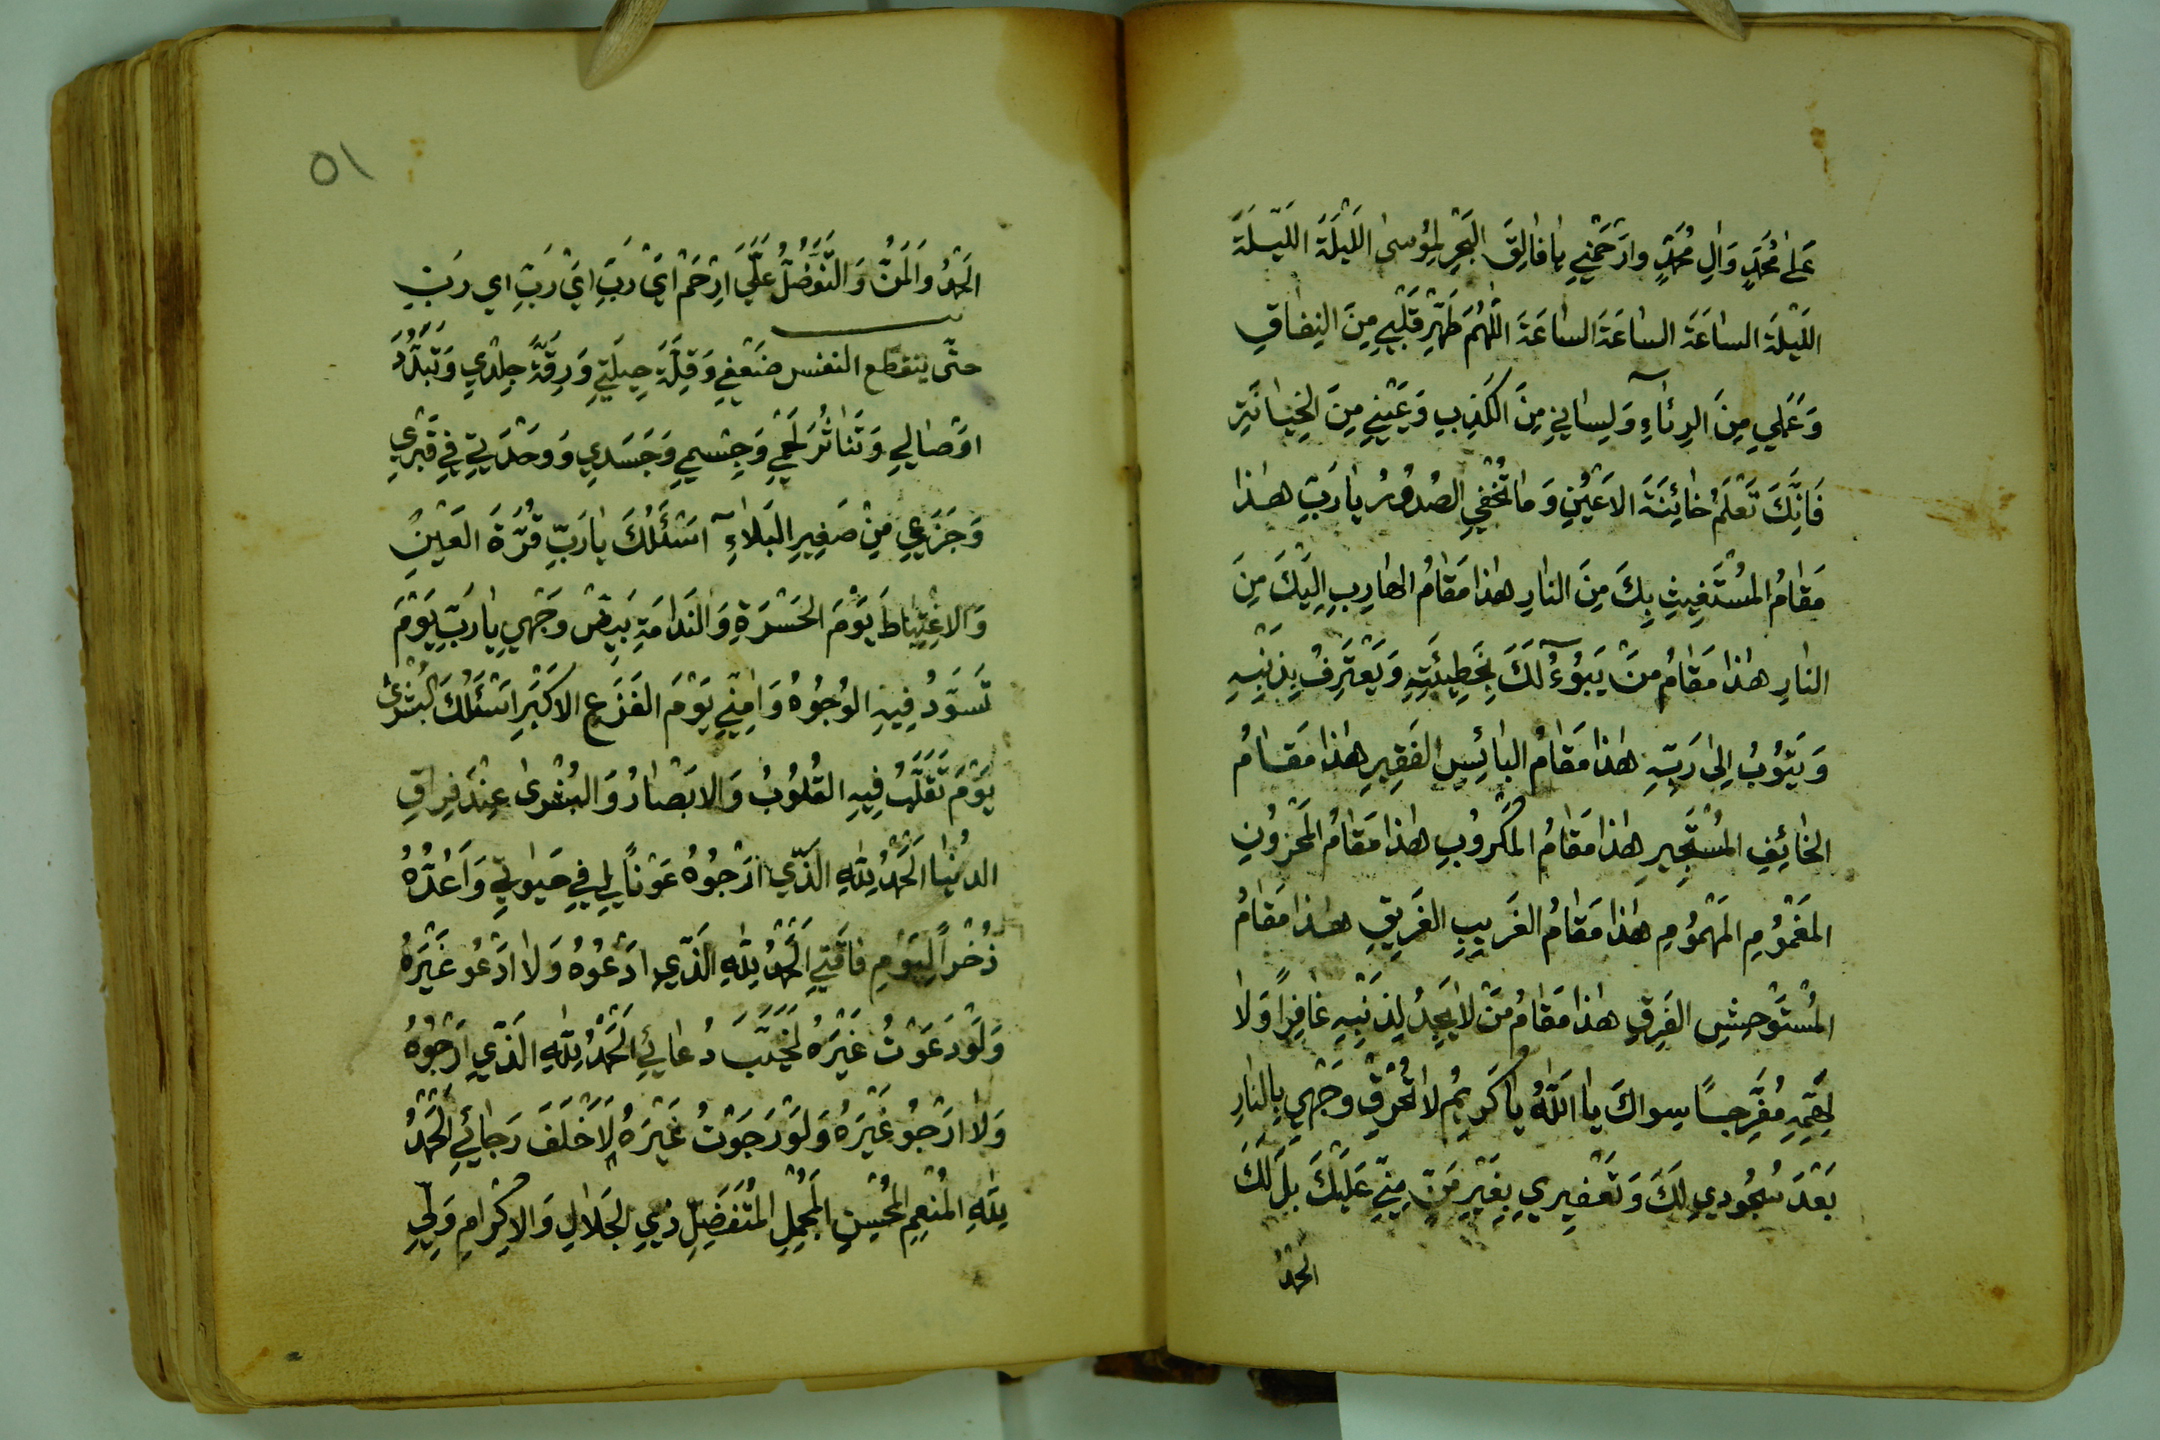 عَلىٰ مُحَمَّدٍ وَالِ مُحَمَّدٍ وارْحَمْنِي يٰا فٰالِقَ الْبَحْرِ لِمُوسىٰ اللَّيْلَةَ اللَّيْلَةَ
اللَّيْلَةَ السٰاعَةَ السٰاعَةَ السٰاعَةَ اللّٰهُمَّ طَهِّرْ قَلْبِي مِنَ النِفٰاقِ
وَعَمَلِي مِنَ الرِئٰاءِ وَلِسٰانِي مِنَ الْكَذِبِ وَعَيْنِي مِنَ الخِيٰانَةِ
فَاِنَّكَ تَعْلَمُ خٰائِنَةَ الاَعْيُنِ وَمٰا تُخْفِي الصُدُورُ يٰا رَبِّ هٰذا
مَقٰامُ المُسْتَغِيثِ بِكَ مِنَ النٰارِ هٰذا مَقٰامُ الهٰارِبِ اِلَيْكَ مِنَ
النٰارِ هٰذا مَقٰامُ مَنْ يَبُوءُ لَكَ بِخَطِيئَتِهِ وَيَعْتَرِفُ بِذَنْبِهِ
وَيَتُوبُ اِلىٰ رَبِّهِ هٰذا مَقٰامُ البٰائِسِ الفَقِيرِ هٰذا مَقٰامُ
الخٰائِفِ المُسْتَجِيرِ هٰذا مَقٰامُ المَكْرُوبِ هٰذا مَقٰامُ المَحْزُونِ
المَغْمُومِ المَهْمُومِ هٰذا مَقٰامُ الغَرِيبِ الغَرِيقِ هٰذا مَقٰامُ
المُسْتَوْحِشِ الفَرِقِ هٰذا مَقٰامُ مَنْ لٰا يَجِدُ لِذَنْبِهِ غٰافِرًا وَلٰا
لِهَمِّهِ مُفَرِّجًا سِواكَ يٰا اَللّٰهُ يٰا كَرِيمُ لٰا تُحْرِقْ وَجْهِي بِالنٰارِ
بَعْدَ سُجُودِي لَكَ وَتَعْفِيرِي بِغَيْرِ مَنٍّ مِنِّي عَلَيْكَ بَلْ لَكَ
الْحَمْدُ
٥١
الْحَمْدُ وَالْمَنُّ وَالتَّفَضُّلُ عَلَيَّ اِرْحَمْ اَيْ رَبِّ اَيْ رَبِّ اي رَبِّ
حتّى ينقطع النفس ضَعْفِي وَقِلَّةَ حِيلَتِي وَرِقَّةَ جِلْدِي وَتَبَدُّدَ
اوْصٰالِي وَتَنٰاثُرَ لَحْمِي وَجِسْمِي وَجَسَدِي وَوَحْدَتِي فِي قَبْرِي
وَجَزَعِي مِنْ صَغِيرِ البَلٰاءِ اَسْئَلُكَ يٰا رَبِّ قُرَّةَ العَيْنِ
وَالاِغْتِبٰاطَ يَوْمَ الحَسْرَةِ وَالنَدٰامَةِ بَيِّضْ وَجْهِي يٰا رَبِّ يَوْمَ
تَسْوَدُّ فِيهِ الوُجُوهُ وَامِنِّي يَوْمَ الفَزَعِ الاكْبَرِ اَسْئَلُكَ البُشْرىٰ
يَوْمَ تَقَلَّبُ فِيهِ القُلُوبُ وَالابْصٰارُ وَالبُشْرىٰ عِنْدَ فِراقِ
الدُنْيٰا اَلْحَمْدُ لِلّٰهِ الَّذِي اَرْجُوهُ عَوْنًا لِي فِي حَيٰوتِي وَاَعُدُّهُ
ذُخْرًا لِيَوْمِ فٰاقَتِي اَلْحَمْدُ لِلّٰهِ الَّذِي ادْعُوهُ وَلٰا ادْعُو غَيْرَهُ
وَلَوْ دَعَوْتُ غَيْرَهُ لَخَيَّبَ دُعٰائِي اَلْحَمْدُ لِلّٰهِ الَّذِي اَرْجُوهُ
وَلٰا ارْجُو غَيْرَهُ وَلَوْ رَجَوْتُ غَيْرَهُ لَاَخْلَفَ رَجٰائِي اَلْحَمْدُ
لِلّٰهِ المُنْعِمِ المُحْسِنِ المُجْمِلِ المُتَفَضِّلِ ذِي الجَلٰالِ وَالاِكْرٰامِ وَلِيِّ